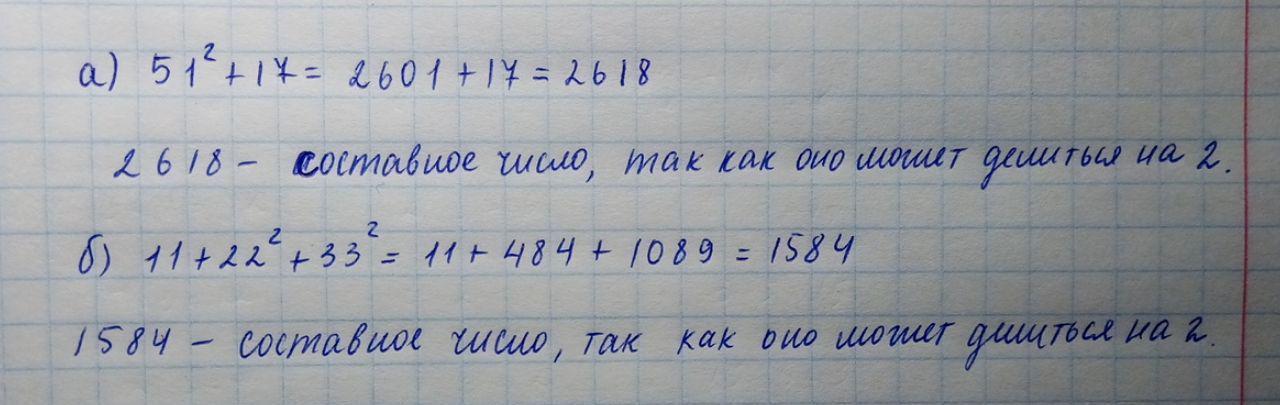 а) 51² + 17 = 2601 + 17 = 2618
2618 - составное число, так как оно может делиться на 2.
б) 11 + 22² + 33² = 11 + 484 + 1089 = 1584
1584 - составное число, так как оно может делиться на 2.